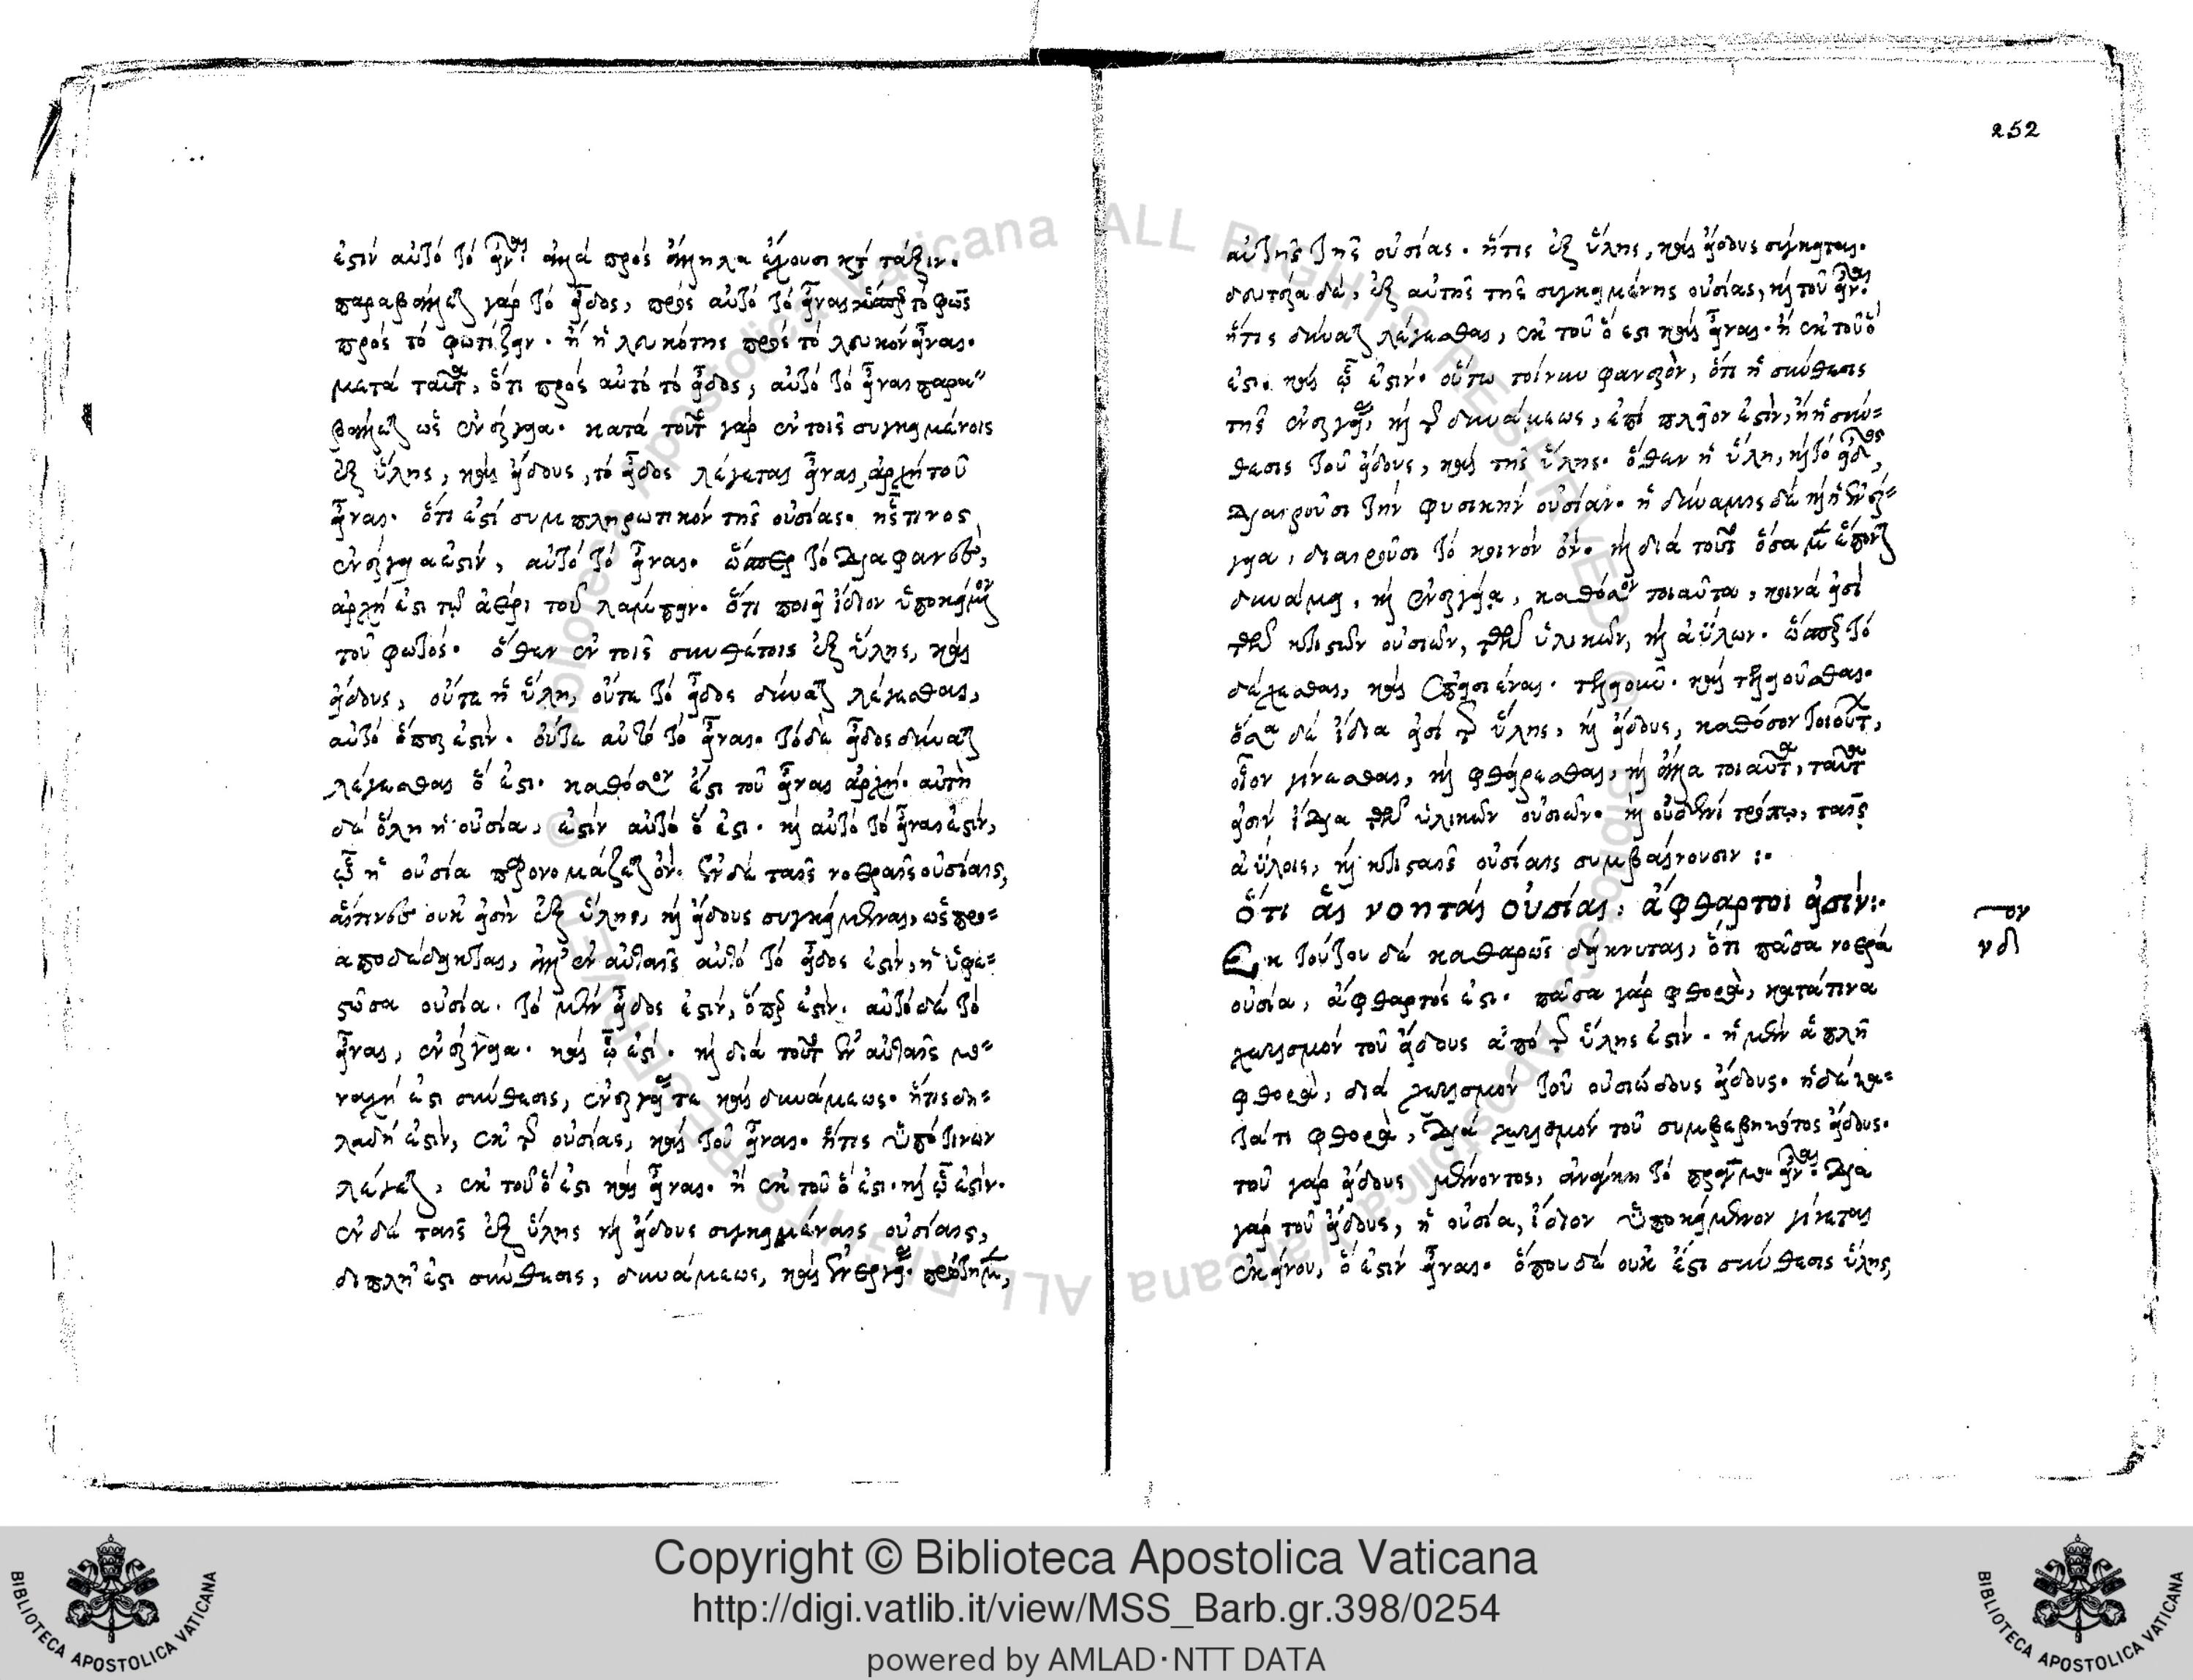 ἐστὶν αὐτὸ τὸ εἶναι. ἀλλὰ πρὸς ἄλληλα ἔχουσι κατὰ τάξιν.
παραβάλλεται γὰρ τὸ εἶδος, πρὸς αὐτὸ τὸ εἶναι ὥσπερ τὸ φῶς
πρὸς τὸ φωτίζειν. ἢ ἡ λευκότης πρὸς τὸ λευκὸν εἶναι.
μετὰ ταῦτα, ὅτι πρὸς αὐτὸ τὸ εἶδος, αὐτὸ τὸ εἶναι παρα"
βάλλεται ὡς ἐνέργεια. κατὰ τοῦτο γὰρ ἐν τοῖς συγκειμένοις
ἐξ ὕλης, καὶ εἴδους, τὸ εἶδος λέγεται εἶναι, ἀρχὴ τοῦ
εἶναι. ὅτι ἐστὶ συμπληρωτικὸν τῆς οὐσίας. ἧς τινος
ἐνέργεια ἐστὶν, αὐτὸ τὸ εἶναι. ὥσπερ τὸ διαφανὲς,
ἀρχή ἐστι τῷ ἀέρι τοῦ λάμπειν. ὅτι ποιεῖ ἴδιον ὑποκείμενον
τοῦ φωτός. ὅθεν ἐν τοῖς συνθέτοις ἐξ ὕλης, καὶ
εἴδους, οὔτε ἡ ὕλη, οὔτε τὸ εἶδος δύναται λέγεσθαι,
αὐτὸ ὅπερ ἐστὶν. οὔτε αὐτὸ τὸ εἶναι. τὸ δὲ εἶδος δύναται
λέγεσθαι ὅ ἐστι. καθόσον ἐστι τοῦ εἶναι ἀρχή. αὐτὴ
δὲ ὅλη ἡ οὐσία, ἐστὶν αὐτὸ ὅ ἐστι. καὶ αὐτὸ τὸ εἶναι ἐστὶν,
ᾧ ἡ οὐσία ὀν. ἐν δὲ ταῖς νοεραῖς οὐσίαις,
αἵτινες οὐκ εἰσὶν ἐξ ὕλης, καὶ εἴδους συγκείμεναι, ὡς προ=
αποδέδεικται, ἀλλ' ἐν αὐταῖς αὐτὸ τὸ εἶδος ἐστὶν, ἡ ὑφε=
στῶσα οὐσία. τὸ μὲν εἶδος ἐστὶν, ὅπερ ἐστὶν. αὐτὸ δὲ τὸ
εἶναι, ἐνέργεια. καὶ ᾧ ἐστί. καὶ διὰ τοῦτο ἐν αὐταῖς μο=
ναχή ἐστι σύνθεσις, ἐνεργείας τε καὶ δυνάμεως. ἥτις δη=
λαδή ἐστὶν, ἐκ τῆς οὐσίας, καὶ τοῦ εἶναι. ἥτις ὑπό τινων
λέγεται, ἐκ τοῦ ὅ ἐστι καὶ εἶναι. ἢ ἐκ τοῦ ὅ ἐστι. καὶ ᾧ ἐστὶν.
ἐν δὲ ταῖς ἐξ ὕλης καὶ εἴδους συγκειμέναις οὐσίαις,
διπλῆ ἐστι σύνθεσις, δυνάμεως, καὶ ἐνεργείας.
252
αὐτῆς τῆς οὐσίας. ἥτις ἐξ ὕλης, καὶ εἴδους σύγκειται.
δευτέρα δὲ, ἐξ αὐτῆς τῆς συγκειμένης οὐσίας, καὶ τοῦ εἶναι.
ἥτις δύναται λέγεσθαι, ἐκ τοῦ ὅ ἐστι καὶ εἶναι. ἢ ἐκ τοῦ ὅ
ἐστι. καὶ ᾧ ἐστίν. οὕτω τοίνυν φανερὸν, ὅτι ἡ σύνθεσις
τῆς ἐνεργείας, καὶ τῆς δυνάμεως, ἐπὶ πλεῖον ἐστὶν, ἢ ἡ σύν=
θεσις τοῦ εἴδους, καὶ τῆς ὕλης. ὅθεν ἡ ὕλη, καὶ τὸ εἶδος,
διαιροῦσι τὴν φυσικὴν οὐσίαν. ἡ δύναμις δὲ καὶ ἡ ἐνέρ=
γεια, διαιροῦσι τὸ κοινὸν ὄν. καὶ διὰ τοῦτο ὅσα μὲν ἕπονται
δυνάμει, καὶ ἐνεργείᾳ, καθόσον τοιαῦτα, κοινά εἰσι
τῶν κτιστῶν οὐσιῶν, τῶν ὑλικῶν, καὶ ἀΰλων. ὥσπερ τὸ
δέχεσθαι, καὶ τελειοῦν. καὶ τελειοῦσθαι.
ὅσα δὲ ἴδια εἰσὶ τῆς ὕλης, καὶ εἴδους, καθόσον τοιαῦτα,
οἷον γίνεσθαι, καὶ φθείρεσθαι, καὶ ἄλλα τοιαῦτα, ταῦτα
εἰσὶν ἴδια τῶν ὑλικῶν οὐσιῶν. καὶ οὐδενὶ τρόπῳ, ταῖς
ἀΰλοις, καὶ κτισταῖς οὐσίαις συμβαίνουσιν :.
ὅτι αἱ νοηταὶ οὐσίαι, ἄφθαρτοι εἰσίν:.
Ἐκ τούτου δὲ καθαρῶς δείκνυται, ὅτι πᾶσα νοερὰ
οὐσία, ἄφθαρτός ἐστι. πᾶσα γὰρ φθορὰ, κατά τινα
χωρισμὸν τοῦ εἴδους ἀπὸ τῆς ὕλης ἐστίν. ἡ μὲν ἁπλῆ
φθορὰ, διὰ χωρισμὸν τοῦ οὐσιώδους εἴδους. ἡ δὲ κα=
τά τι φθορὰ, διὰ χωρισμὸν τοῦ συμβεβηκότος εἴδους.
τοῦ γὰρ εἴδους μένοντος, ἀνάγκη τὸ πρᾶγμα εἶναι. διὰ
γὰρ τοῦ εἴδους, ἡ οὐσία, ἴδιον ὑποκείμενον γίνεται
ἐκείνου, ὅ ἐστὶν εἶναι. ὅπου δὲ οὐκ ἔστι σύνθεσις ὕλης,
νδ
Copyright © Biblioteca Apostolica Vaticana
http://digi.vatlib.it/view/MSS_Barb.gr.398/0254
powered by AMLAD·NTT DATA
BIBLIOTECA APOSTOLICA VATICANA
BIBLIOTECA APOSTOLICA VATICANA